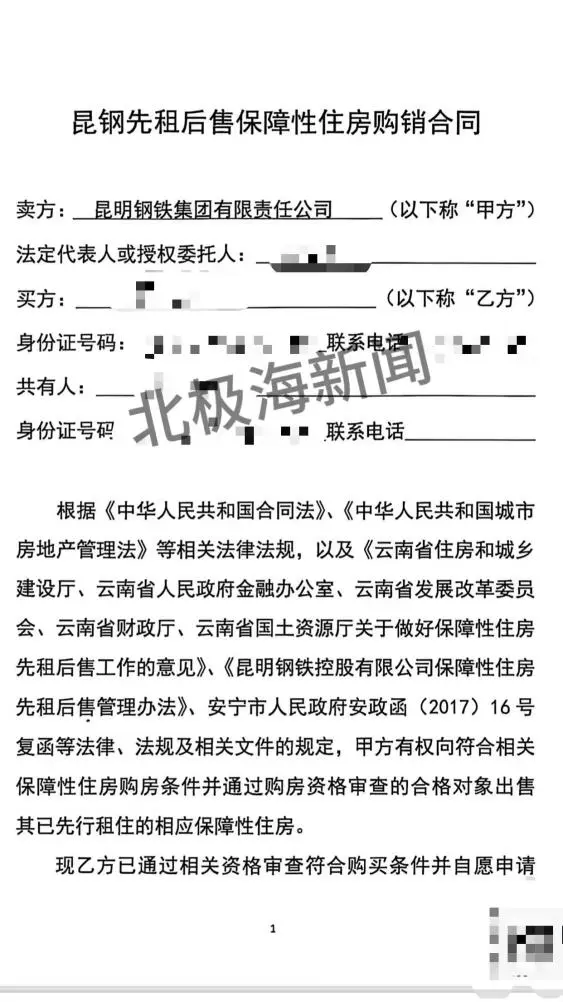 昆钢先租后售保障性住房购销合同
卖方：昆明钢铁集团有限责任公司（以下称“甲方”）
法定代表人或授权委托人：
买方：（以下称“乙方”）
身份证号码：联系电话
共有人：
身份证号码联系电话
北极海新闻
根据《中华人民共和国合同法》、《中华人民共和国城市
房地产管理法》等相关法律法规，以及《云南省住房和城乡
建设厅、云南省人民政府金融办公室、云南省发展改革委员
会、云南省财政厅、云南省国土资源厅关于做好保障性住房
先租后售工作的意见》、《昆明钢铁控股有限公司保障性住房
先租后售管理办法》、安宁市人民政府安政函（2017）16号
复函等法律、法规及相关文件的规定，甲方有权向符合相关
保障性住房购房条件并通过购房资格审查的合格对象出售
其已先行租住的相应保障性住房。
现乙方已通过相关资格审查符合购买条件并自愿申请
1